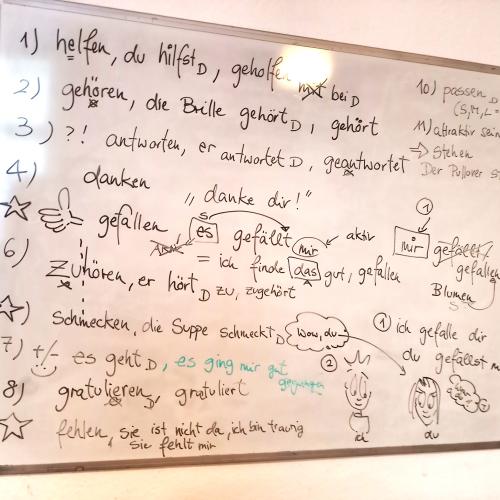 1) helfen, du hilfst D, geholfen mit bei D
2) gehören, die Brille gehört D, gehört
3) ?! antworten, er antwortet D, geantwortet
4) danken „danke dir!"
gefallen, es gefällt mir aktiv
S
= ich finde das gut, gefallen
6) zuhören, er hört D zu, zugehört
schmecken, die Suppe schmeckt D
Wow, du
7) +/- es geht D, es ging mir gut
gegangen
8) gratulieren D, gratuliert
fehlen, sie ist nicht da, ich bin traurig
sie fehlt mir
10) passen D
(S, M, L =
11) attraktiv sein
⇒ stehen
Der Pullover s
1
mir gefällt/
gefallen
Blumen
S
1 ich gefalle dir
du gefällst m
2
ich
du